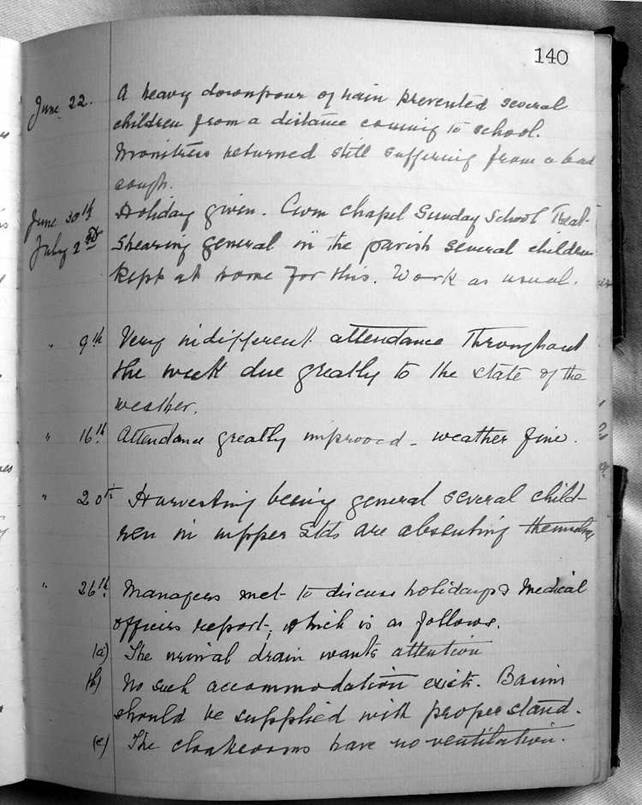 140
June 22. A heavy downpour of rain prevented several
children from a distance coming to school.
Monitress returned still suffering from a bad
cough.
June 30th Holiday given. Cwm Chapel Sunday School Treat.
July 2nd Shearing general in the parish several children
kept at home for this. Work as usual.
" 9th Very indifferent attendance throughout
the week due greatly to the state of the
weather.
" 16th Attendance greatly improved - weather fine.
" 20th Harvesting being general several child-
ren in upper Stds are absenting themselves
" 26th Managers met to discuss holidays & Medical
officers report, which is as follows.
(a) The urinal drain wants attention
(b) No such accommodation exists. Basins
should be supplied with proper stand.
(c) The cloakrooms have no ventilation.